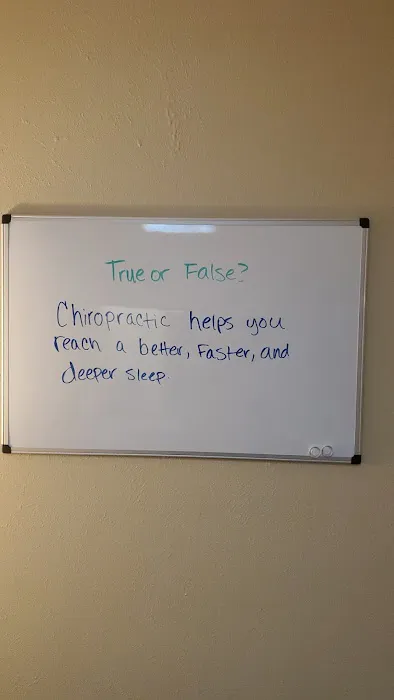 True or False?
Chiropractic helps you
reach a better, Faster, and
deeper sleep.